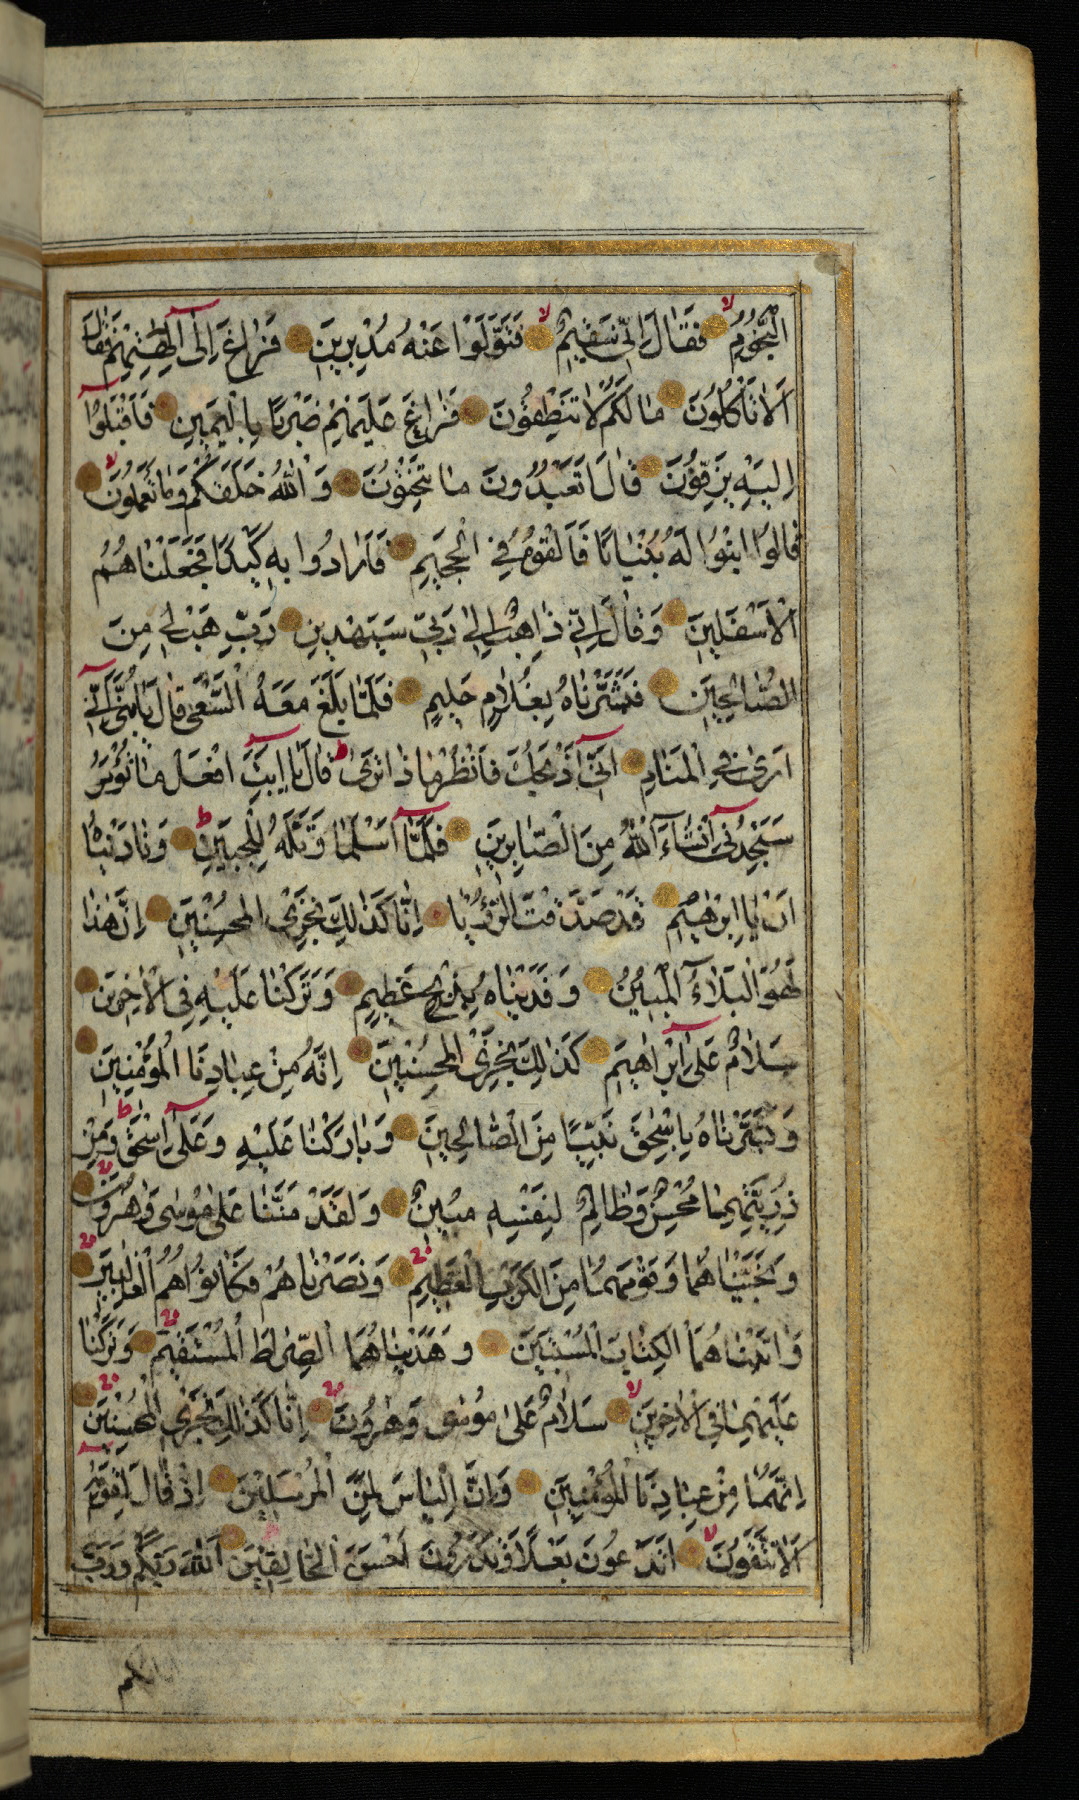 النُّجُومِ فَقَالَ اِنّى سَقِيمٌ فَتَوَلَّوْا عَنْهُ مُدْبِرِينَ فَرَاغَ اِلٰى اٰلِهَتِهِمْ فَقَالَ
اَلَا تَأْكُلُونَ مَا لَكُمْ لَا تَنْطِقُونَ فَرَاغَ عَلَيْهِمْ ضَرْبًا بِالْيَمِينِ فَاَقْبَلُوا
اِلَيْهِ يَزِفُّونَ قَالَ اَتَعْبُدُونَ مَا تَنْحِتُونَ وَاللّٰهُ خَلَقَكُمْ وَمَا تَعْمَلُونَ
قَالُوا ابْنُوا لَهُ بُنْيَانًا فَاَلْقُوهُ فِي الْجَحِيمِ فَاَرَادُوا بِهِ كَيْدًا فَجَعَلْنَاهُمُ
الْاَسْفَلِينَ وَقَالَ اِنّى ذَاهِبٌ اِلٰى رَبّى سَيَهْدِينِ رَبِّ هَبْ لِى مِنَ
الصَّالِحِينَ فَبَشَّرْنَاهُ بِغُلَامٍ حَلِيمٍ فَلَمَّا بَلَغَ مَعَهُ السَّعْىَ قَالَ يَا بُنَىَّ اِنّى
اَرٰى فِى الْمَنَامِ اَنّى اَذْبَحُكَ فَانْظُرْ مَاذَا تَرٰى قَالَ يَا اَبَتِ افْعَلْ مَا تُؤْمَرُ
سَتَجِدُنى اِنْشَاءَ اللّٰهُ مِنَ الصَّابِرِينَ فَلَمَّا اَسْلَمَا وَتَلَّهُ لِلْجَبِينِ وَنَادَيْنَاهُ
اَنْ يَا اِبْرٰهِيمُ قَدْ صَدَّقْتَ الرُّؤْيَا اِنَّا كَذٰلِكَ نَجْزِى الْمُحْسِنِينَ اِنَّ هٰذَا
لَهُوَ الْبَلَاءُ الْمُبِينُ وَفَدَيْنَاهُ بِذِبْحٍ عَظِيمٍ وَتَرَكْنَا عَلَيْهِ فِى الْاٰخِرِينَ
سَلَامٌ عَلٰى اِبْرَاهِيمَ كَذٰلِكَ نَجْزِى الْمُحْسِنِينَ اِنَّهُ مِنْ عِبَادِنَا الْمُؤْمِنِينَ
وَبَشَّرْنَاهُ بِاِسْحٰقَ نَبِيًّا مِنَ الصَّالِحِينَ وَبَارَكْنَا عَلَيْهِ وَعَلٰى اِسْحٰقَ وَمِنْ
ذُرِّيَّتِهِمَا مُحْسِنٌ وَظَالِمٌ لِنَفْسِهِ مُبِينٌ وَلَقَدْ مَنَنَّا عَلٰى مُوسٰى وَهٰرُونَ
وَنَجَّيْنَاهُمَا وَقَوْمَهُمَا مِنَ الْكَرْبِ الْعَظِيمِ وَنَصَرْنَاهُمْ فَكَانُوا هُمُ الْغَالِبِينَ
وَاٰتَيْنَاهُمَا الْكِتَابَ الْمُسْتَبِينَ وَهَدَيْنَاهُمَا الصِّرَاطَ الْمُسْتَقِيمَ وَتَرَكْنَا
عَلَيْهِمَا فِى الْاٰخِرِينَ سَلَامٌ عَلٰى مُوسٰى وَهٰرُونَ اِنَّا كَذٰلِكَ نَجْزِى الْمُحْسِنِينَ
اِنَّهُمَا مِنْ عِبَادِنَا الْمُؤْمِنِينَ وَاِنَّ اِلْيَاسَ لَمِنَ الْمُرْسَلِينَ اِذْ قَالَ لِقَوْمِهِ
اَلَا تَتَّقُونَ اَتَدْعُونَ بَعْلًا وَتَذَرُونَ اَحْسَنَ الْخَالِقِينَ اَللّٰهَ رَبَّكُمْ وَرَبَّ